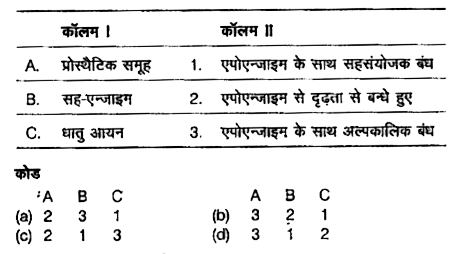 कॉलम I कॉलम II
A. प्रोस्थैटिक समूह 1. एपोएन्जाइम के साथ सहसंयोजक बंध
B. सह-एन्जाइम 2. एपोएन्जाइम से दृढ़ता से बन्धे हुए
C. धातु आयन 3. एपोएन्जाइम के साथ अल्पकालिक बंध
कोड
A B C A B C
(a) 2 3 1 (b) 3 2 1
(c) 2 1 3 (d) 3 1 2